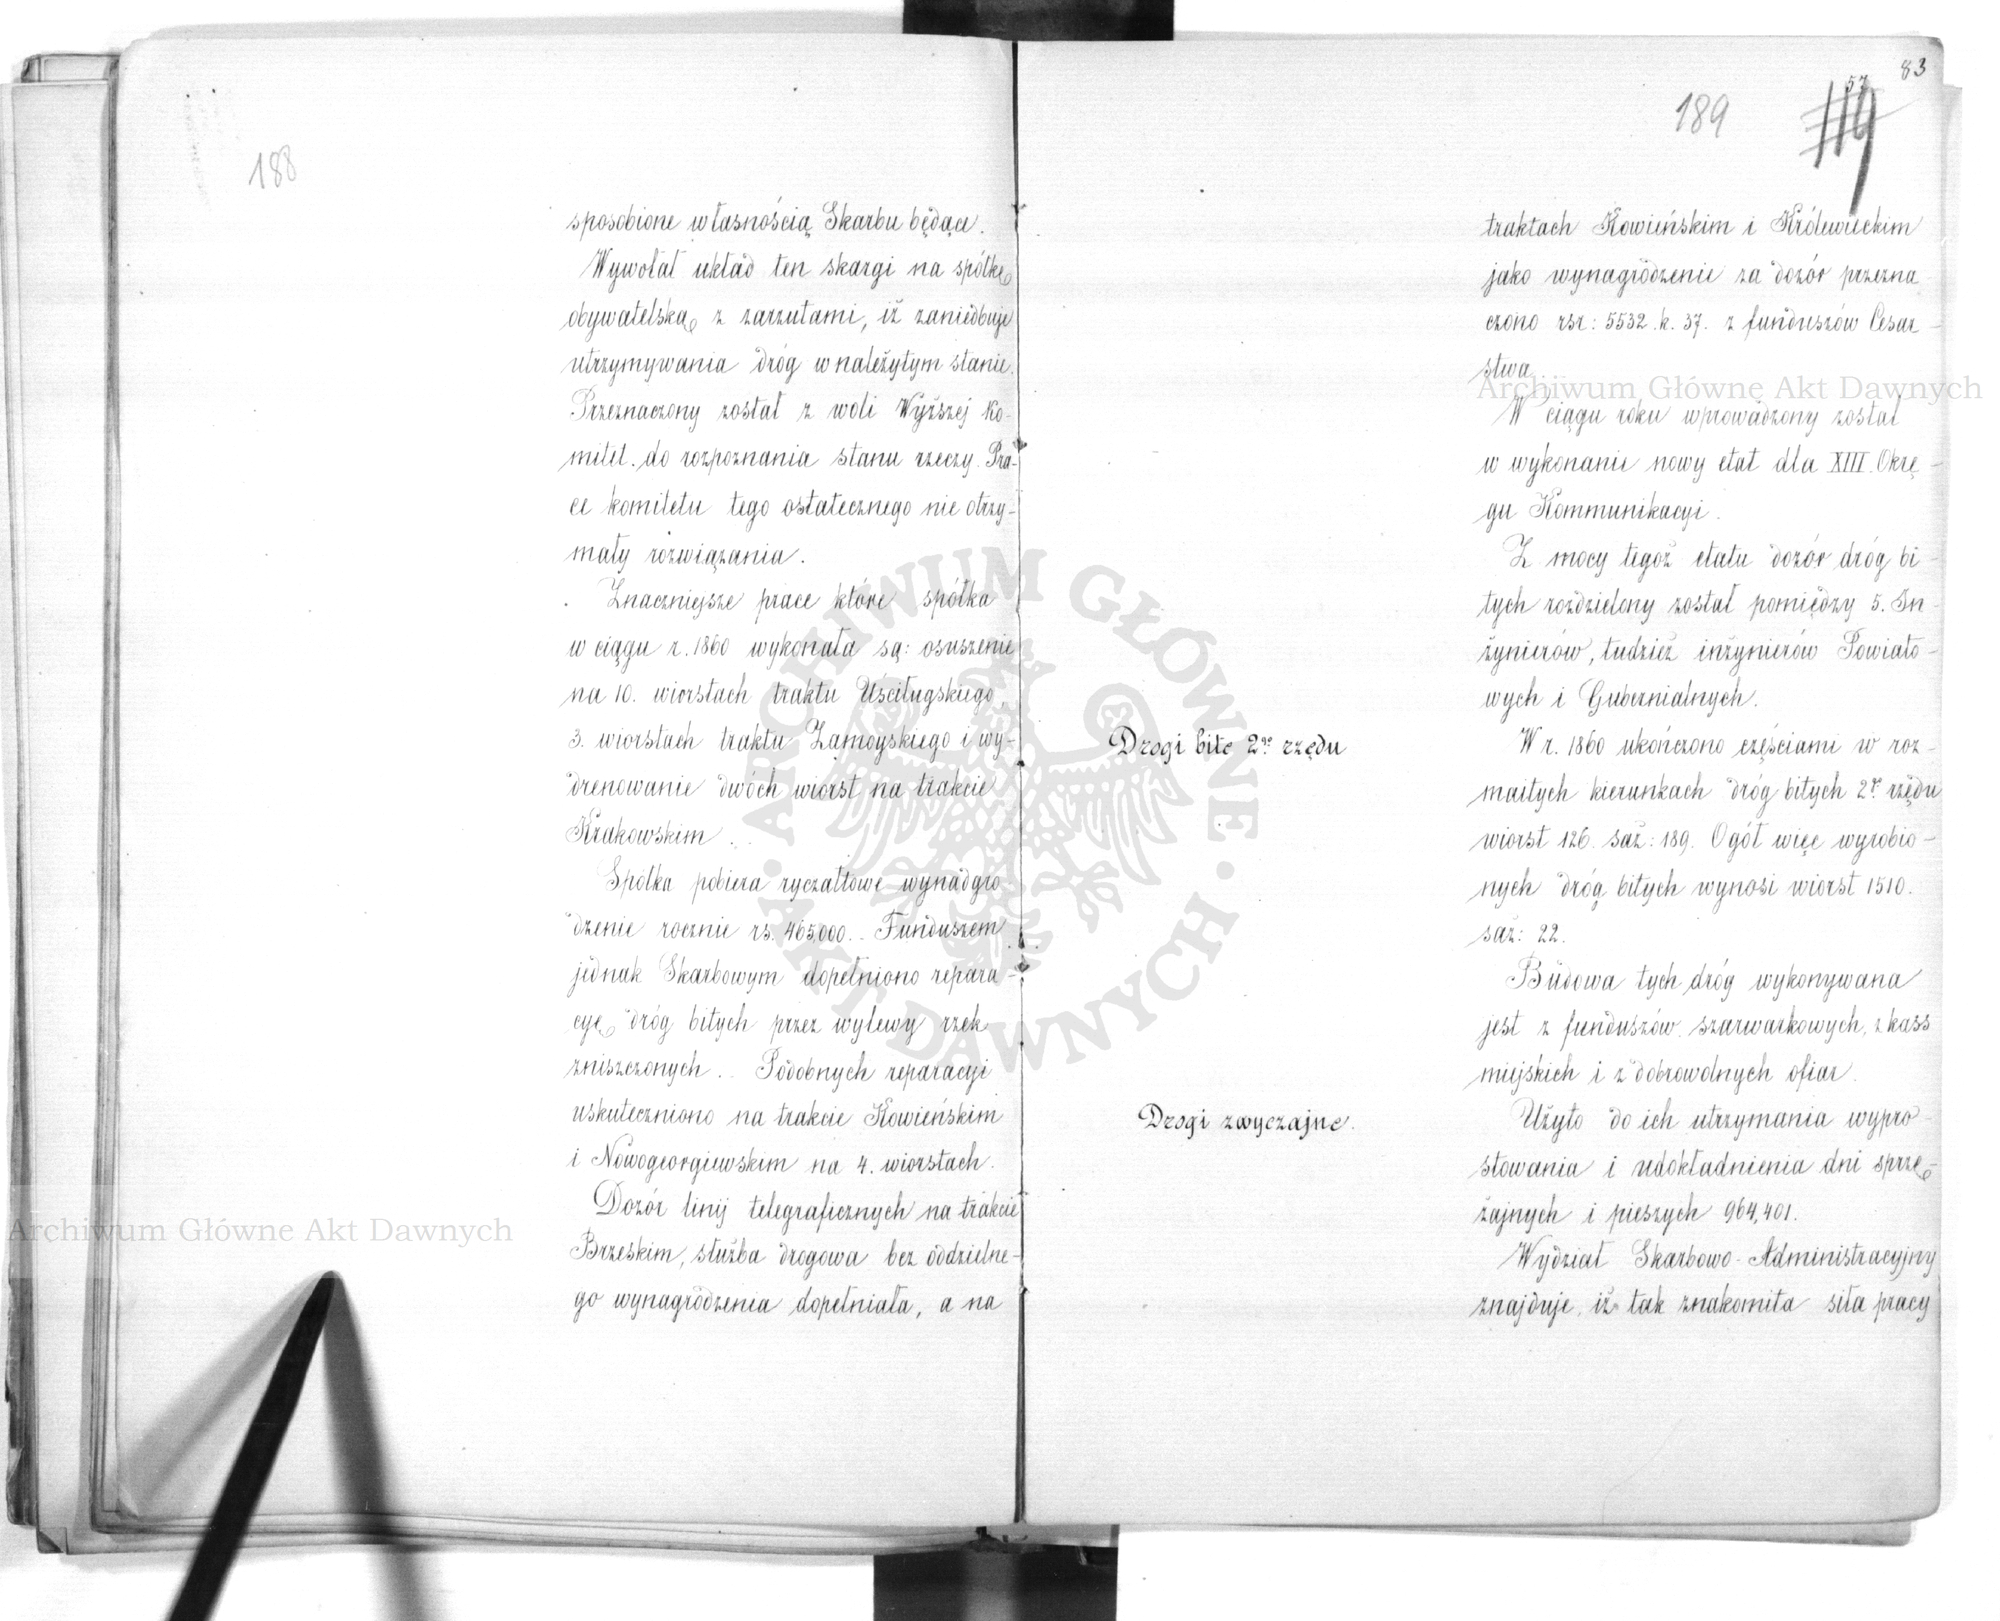 188
sposobione własnością Skarbu będące.
Wywołał układ ten skargi na spółkę
obywatelską z zarzutami, iż zaniedbuje
utrzymywania dróg w należytym stanie.
Przeznaczony został z woli Wyższej Ko-
mitet do rozpoznania stanu rzeczy. Pra-
ce komitetu tego ostatecznego nie otrzy-
mały rozwiązania.
Znaczniejsze prace które spółka
w ciągu r. 1860 wykonała są: osuszenie
na 10. wiorstach traktu Uściługskiego,
3. wiorstach traktu Zamoyskiego i wy-
drenowanie dwóch wiorst na trakcie
Krakowskim.
Spółka pobiera ryczałtowe wynadgro
dzenie rocznie rs. 465,000. Funduszem
jednak Skarbowym dopełniono repara-
cyę dróg bitych przez wylewy rzek
zniszczonych. Podobnych reparacyi
uskuteczniono na trakcie Kowieńskim
i Nowogeorgiewskim na 4. wiorstach.
Dozór linij telegraficznych na trakcie
Brzeskim, służba drogowa bez oddzielne-
go wynagrodzenia dopełniała, a na
83
57
189
119
traktach Kowieńskim i Królewieckim
jako wynagrodzenie za dozór przezna
czono rsr: 5532. k. 37. z funduszów Cesar-
stwa.
W ciągu roku wprowadzony został
w wykonanie nowy etat dla XIII. Okrę-
gu Kommunikacyi.
Z mocy tegoż etatu dozór dróg bi-
tych rozdzielony został pomiędzy 5. In-
żynierów, tudzież inżynierów Powiato-
wych i Gubernialnych.
Drogi bite 2go rzędu
W r. 1860 ukończono częściami w roz-
maitych kierunkach dróg bitych 2go rzędu
wiorst 126. saż: 189. Ogół więc wyrobio-
nych dróg bitych wynosi wiorst 1510.
saż: 22.
Budowa tych dróg wykonywana
jest z funduszów szarwarkowych, z kass
miejskich i z dobrowolnych ofiar.
Drogi zwyczajne.
Użyto do ich utrzymania wypro-
stowania i udokładnienia dni sprzę-
żajnych i pieszych 964,401.
Wydział Skarbowo-Administracyjny
znajduje, iż tak znakomita siła pracy
Archiwum Główne Akt Dawnych
Archiwum Główne Akt Dawnych
ARCHIWUM GŁÓWNE AKT DAWNYCH